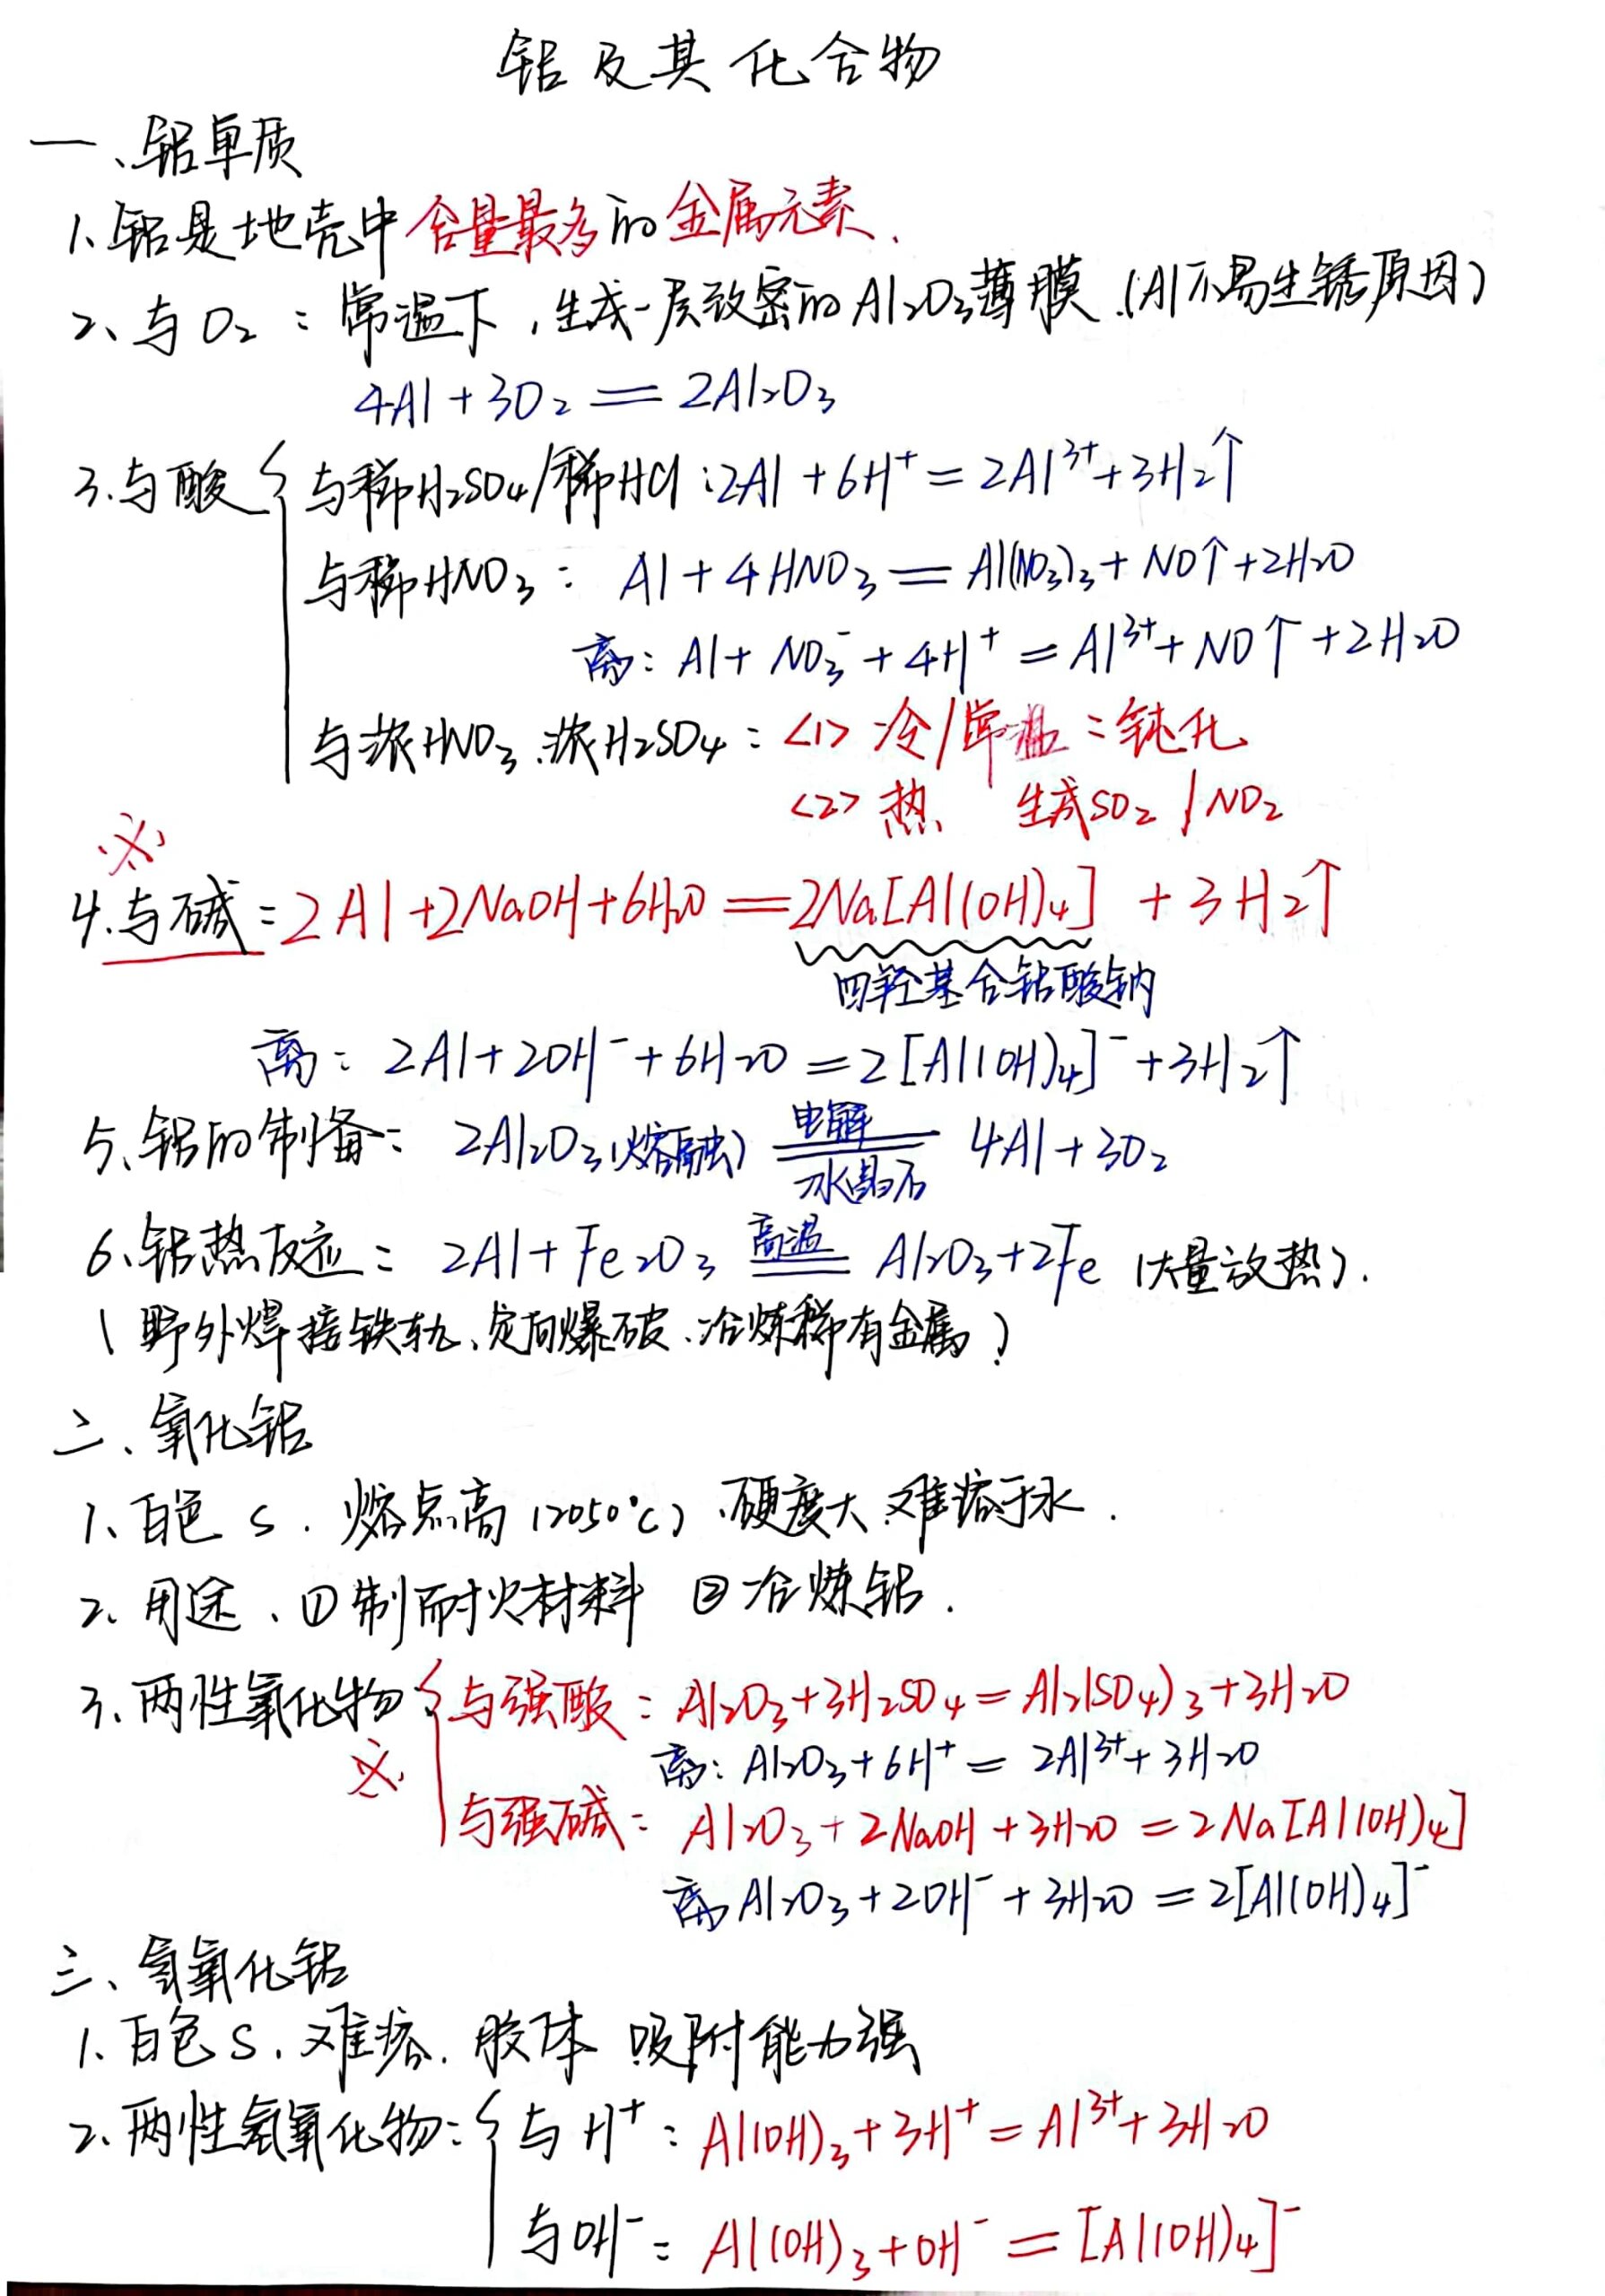 铝及其化合物
一、铝单质
1、铝是地壳中含量最多的金属元素.
2、与O₂：常温下,生成一层致密的Al₂O₃薄膜.(Al不易生锈原因)
4Al+3O₂=2Al₂O₃
3.与酸{与稀H₂SO₄/稀HCl:2Al+6H⁺=2Al³⁺+3H₂↑
与稀HNO₃：Al+4HNO₃=Al(NO₃)₃+NO↑+2H₂O
离：Al+NO₃⁻+4H⁺=Al³⁺+NO↑+2H₂O
与浓HNO₃.浓H₂SO₄：<1>冷/常温：钝化
<2>热、生成SO₂/NO₂
※
4.与碱：2Al+2NaOH+6H₂O=2Na[Al(OH)₄]+3H₂↑
四羟基合铝酸钠
离：2Al+2OH⁻+6H₂O=2[Al(OH)₄]⁻+3H₂↑
5、铝的制备：2Al₂O₃(熔融) 电解 冰晶石 4Al+3O₂
6、铝热反应：2Al+Fe₂O₃ 高温 Al₂O₃+2Fe(大量放热).
(野外焊接铁轨、定向爆破、冶炼稀有金属)
二、氧化铝
1、白色s.熔点高(2050℃)、硬度大.难溶于水.
2、用途、①制耐火材料 ②冶炼铝.
3、两性氧化物{与强酸：Al₂O₃+3H₂SO₄=Al₂(SO₄)₃+3H₂O
※ 离：Al₂O₃+6H⁺=2Al³⁺+3H₂O
与强碱：Al₂O₃+2NaOH+3H₂O=2Na[Al(OH)₄]
离Al₂O₃+2OH⁻+3H₂O=2[Al(OH)₄]⁻
三、氢氧化铝
1、白色s.难溶.胶体 吸附能力强
2、两性氢氧化物：{与H⁺：Al(OH)₃+3H⁺=Al³⁺+3H₂O
与OH⁻：Al(OH)₃+OH⁻=[Al(OH)₄]⁻